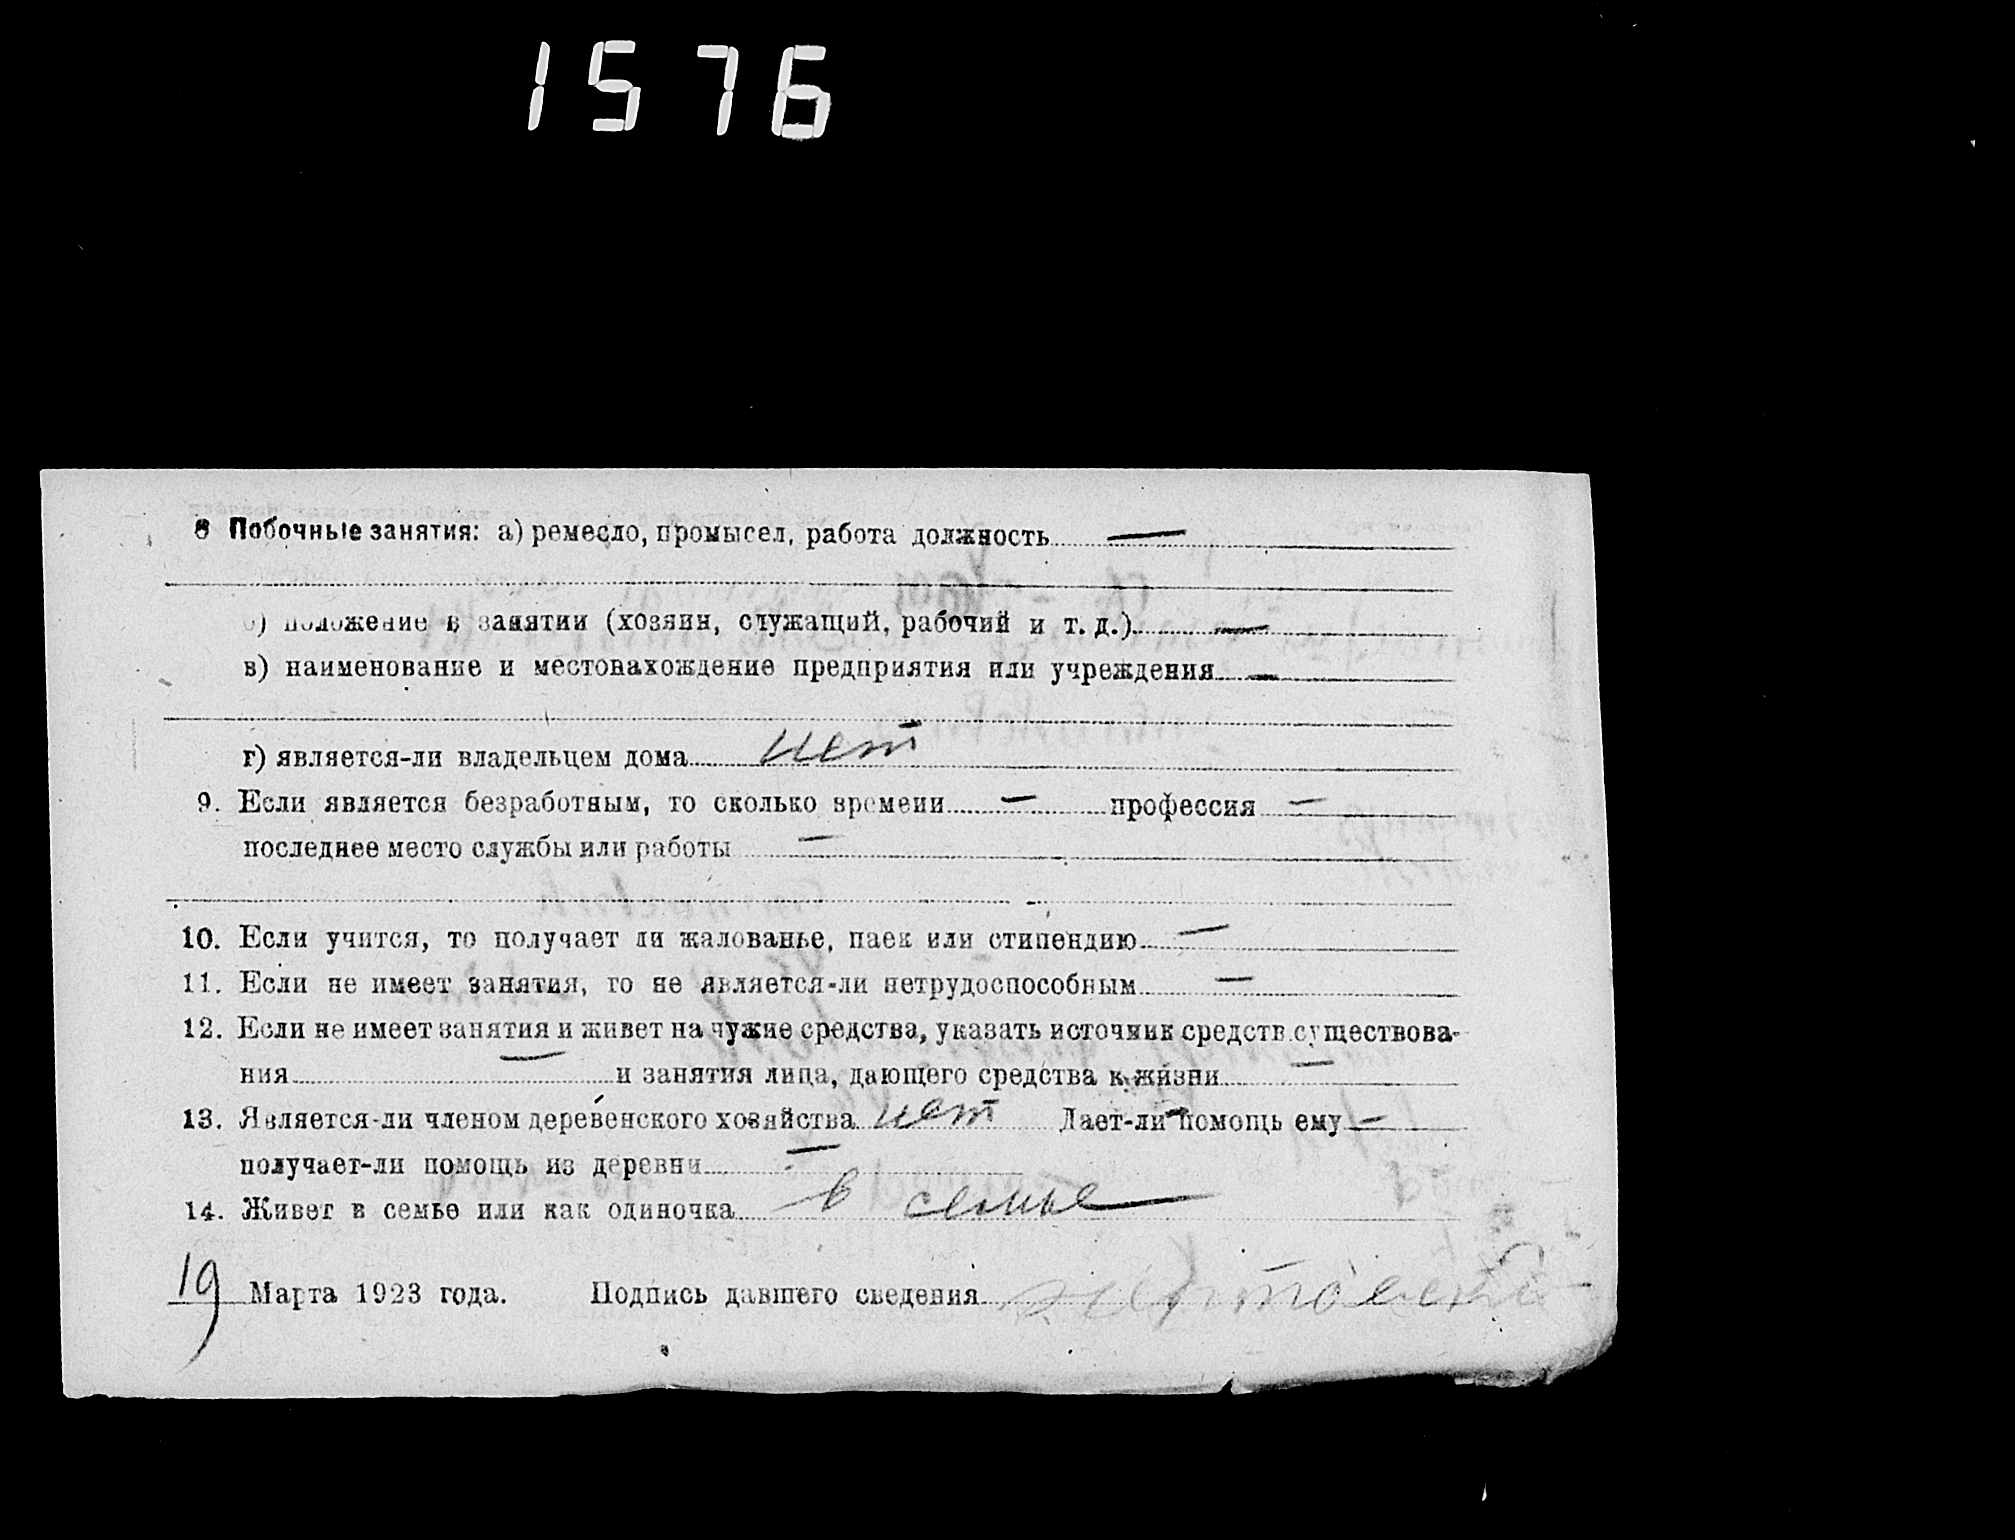 1576
8 Побочные занятия: а) ремесло, промысел, работа должность —
б) положение в занятии (хозяин, служащий, рабочий и т. д.) —
в) наименование и местонахождение предприятия или учреждения —
г) является-ли владельцем дома нет
9. Если является безработным, то сколько времени — профессия —
последнее место службы или работы —
10. Если учится, то получает ли жалованье, паек или стипендию —
11. Если не имеет занятия, то не является-ли нетрудоспособным —
12. Если не имеет занятия и живет на чужие средства, указать источник средств существова-
ния — и занятия лица, дающего средства к жизни —
13. Является-ли членом деревенского хозяйства нет Дает-ли помощь ему —
получает-ли помощь из деревни —
14. Живет в семье или как одиночка в семье
19 Марта 1923 года. Подпись давшего сведения